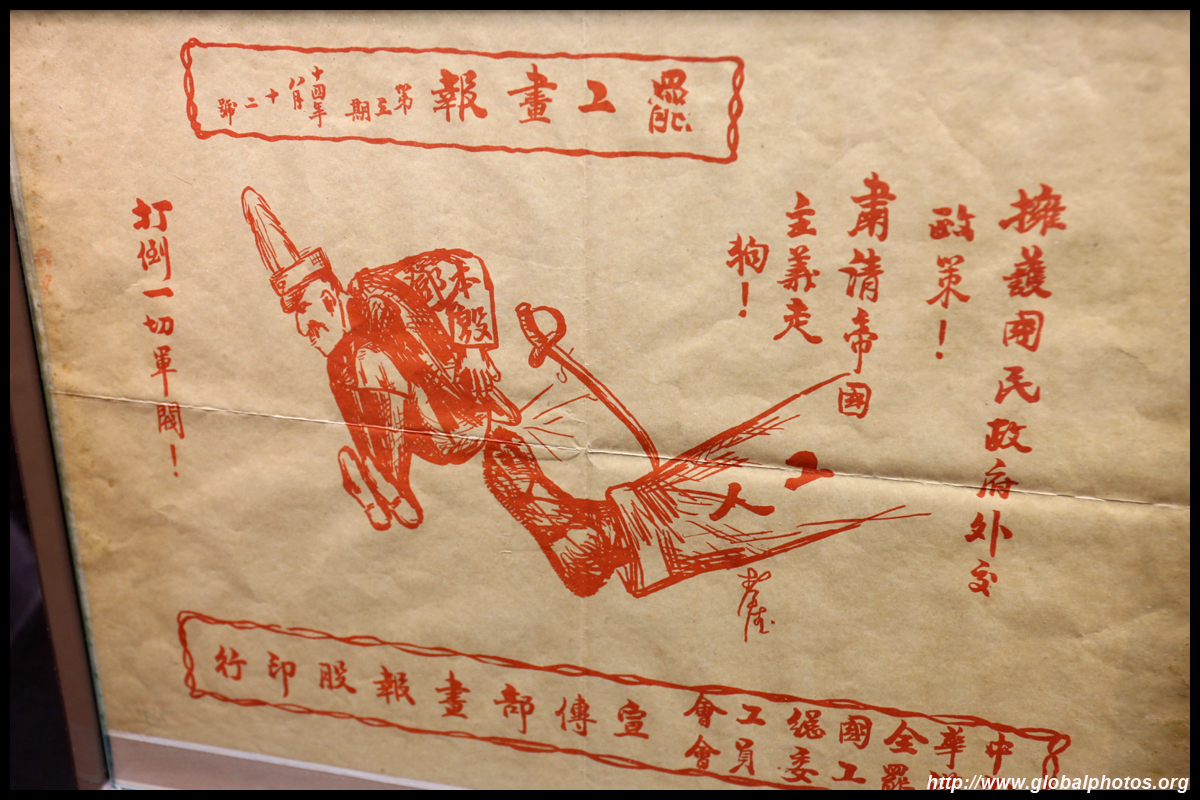 罷工畫報
第五期
十四年
八月
十二號
擁護國民政府外交
政策！
肅清帝國
主義走
狗！
鄧本殷
工人
打倒一切軍閥！
中華全國總工會
罷工委員會
宣傳部畫報股印行
http://www.globalphotos.org